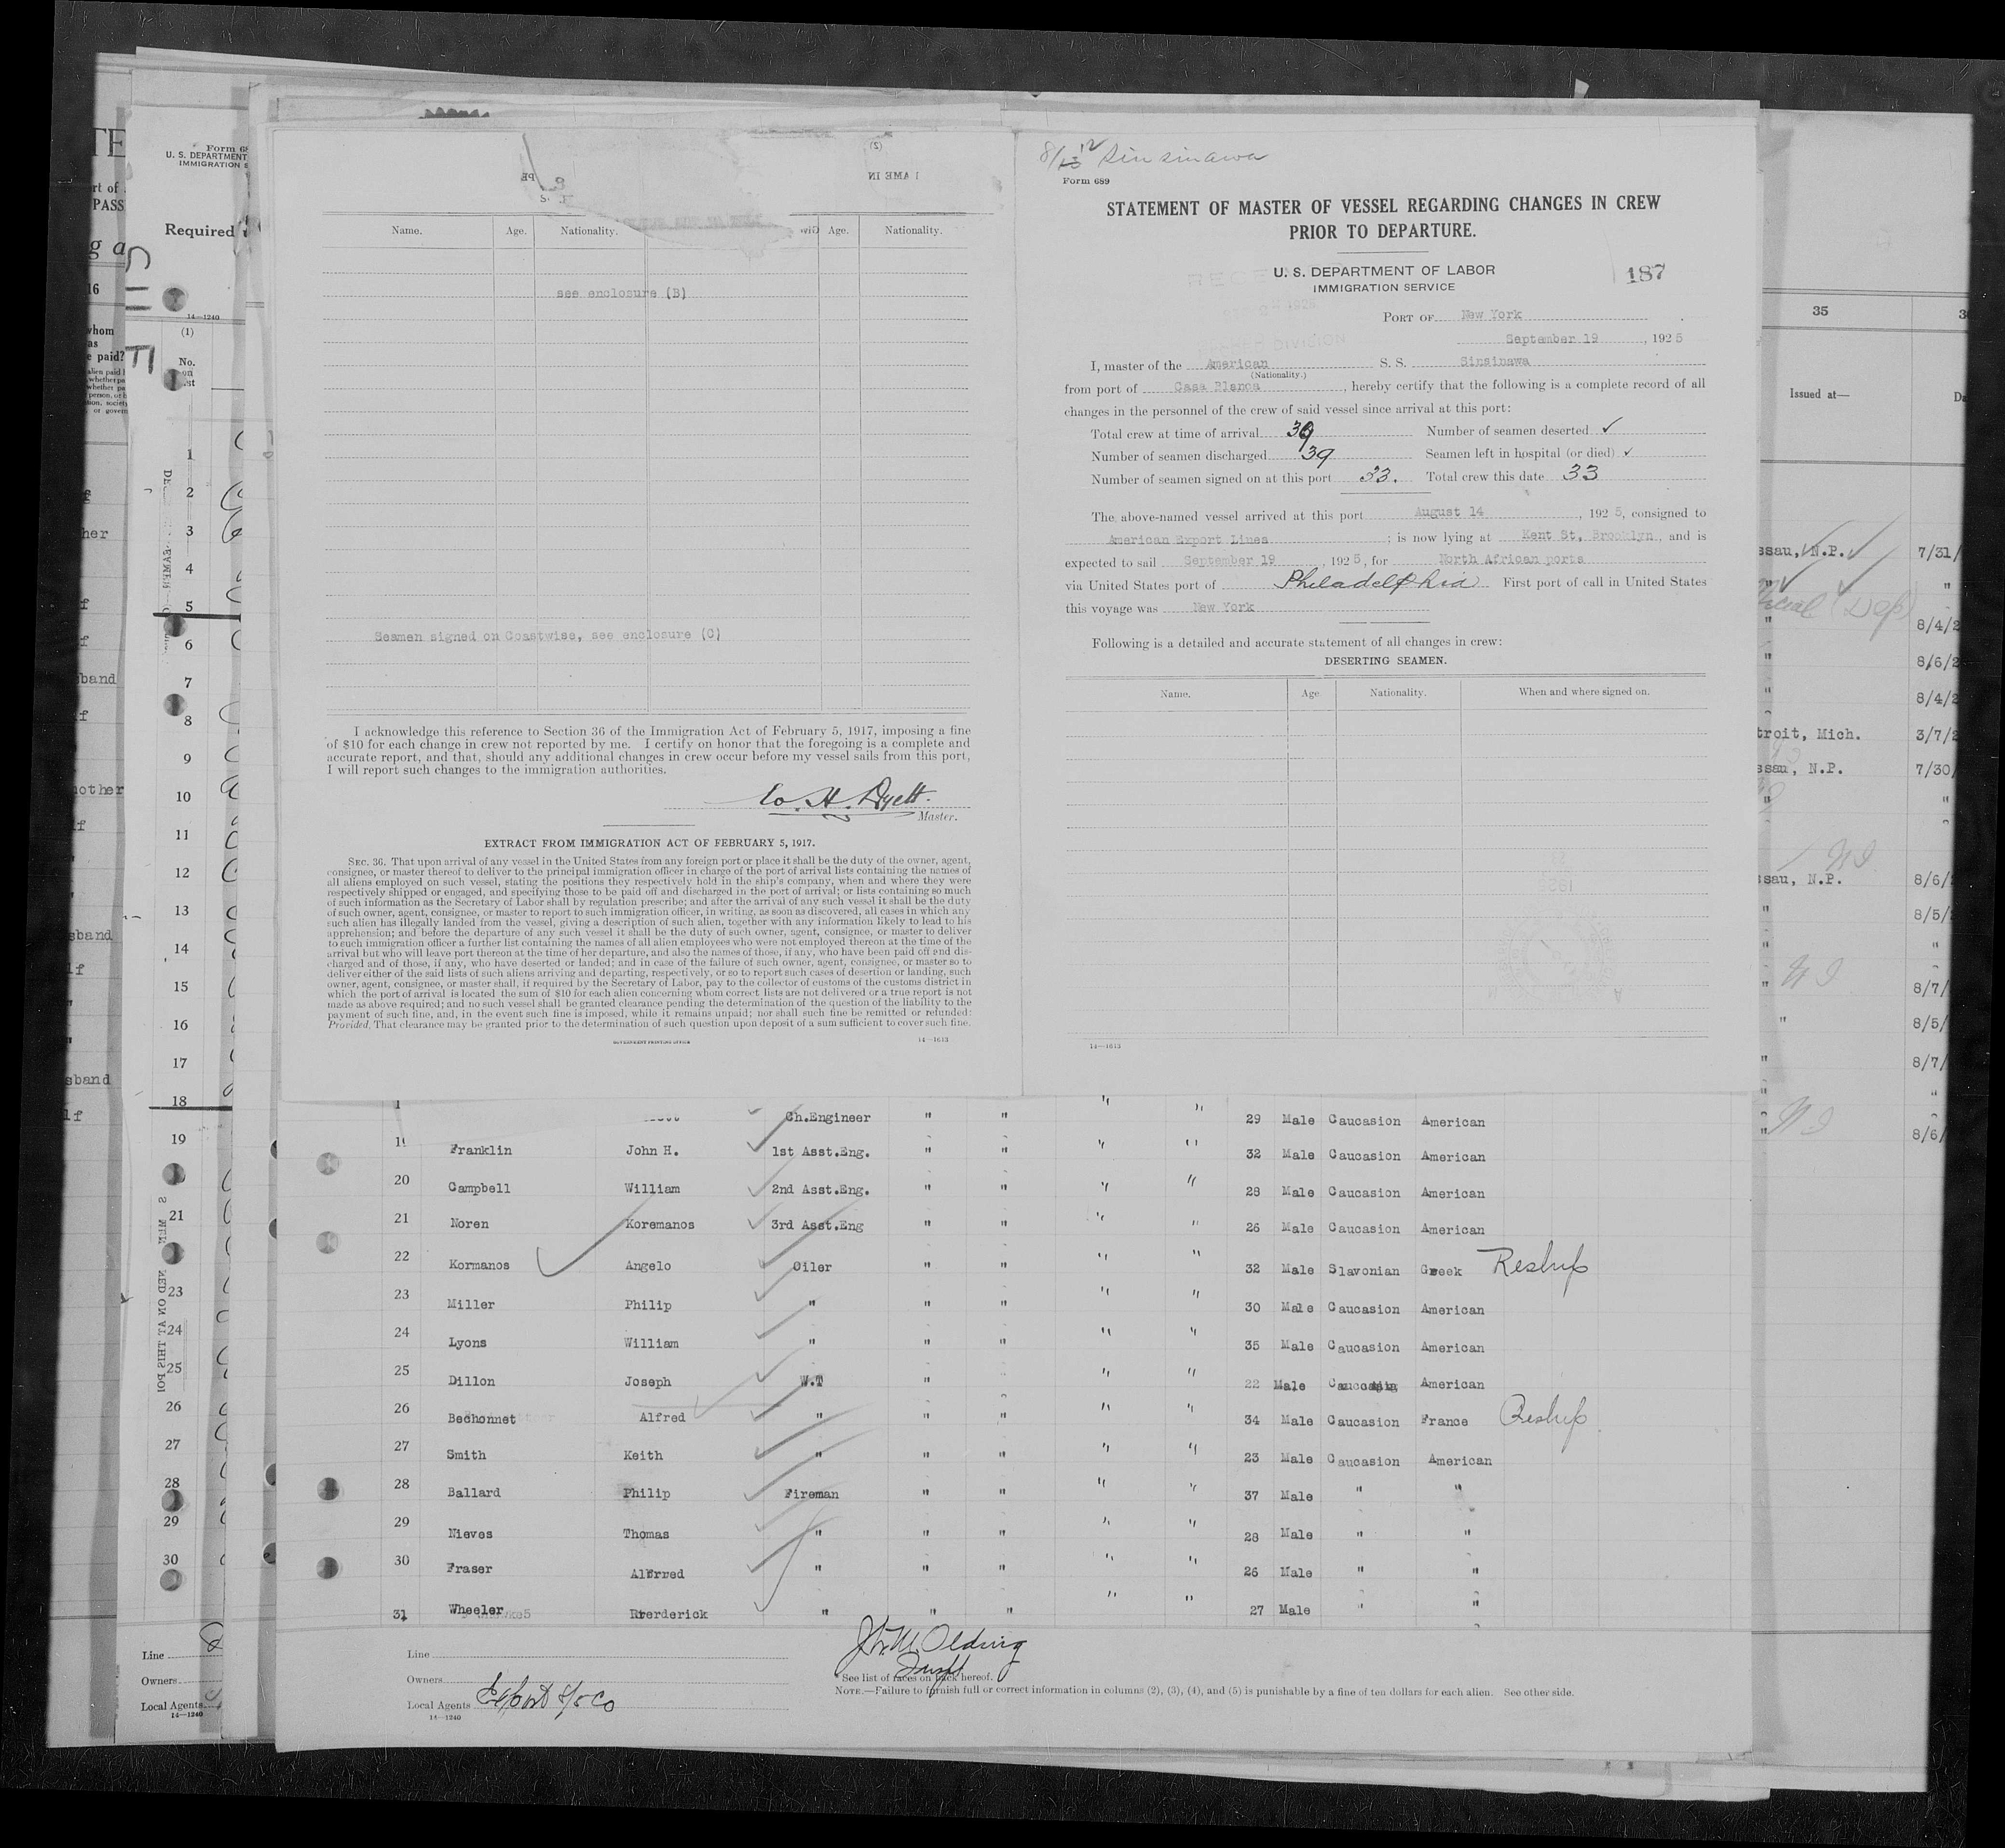 8/12 Sinsinawa
Form 689
STATEMENT OF MASTER OF VESSEL REGARDING CHANGES IN CREW
PRIOR TO DEPARTURE.
U. S. DEPARTMENT OF LABOR
IMMIGRATION SERVICE
187
PORT OF New York
September 19, 1925
I, master of the American S. S. Sinsinawa
(Nationality.)
from port of Casa Blanca, hereby certify that the following is a complete record of all
changes in the personnel of the crew of said vessel since arrival at this port:
Total crew at time of arrival 39 Number of seamen deserted ✓
Number of seamen discharged 39 Seamen left in hospital (or died) ✓
Number of seamen signed on at this port 33. Total crew this date 33
The above-named vessel arrived at this port August 14, 1925, consigned to
American Export Lines; is now lying at Kent St. Brooklyn, and is
expected to sail September 19, 1925, for North African ports
via United States port of Philadelphia First port of call in United States
this voyage was New York
Following is a detailed and accurate statement of all changes in crew:
DESERTING SEAMEN.
Name. Age. Nationality. When and where signed on.
14—1613
Name. Age. Nationality. Age. Nationality.
see enclosure (B)
Seamen signed on Coastwise, see enclosure (C)
I acknowledge this reference to Section 36 of the Immigration Act of February 5, 1917, imposing a fine
of $10 for each change in crew not reported by me. I certify on honor that the foregoing is a complete and
accurate report, and that, should any additional changes in crew occur before my vessel sails from this port,
I will report such changes to the immigration authorities.
Master.
EXTRACT FROM IMMIGRATION ACT OF FEBRUARY 5, 1917.
SEC. 36. That upon arrival of any vessel in the United States from any foreign port or place it shall be the duty of the owner, agent,
consignee, or master thereof to deliver to the principal immigration officer in charge of the port of arrival lists containing the names of
all aliens employed on such vessel, stating the positions they respectively hold in the ship's company, when and where they were
respectively shipped or engaged, and specifying those to be paid off and discharged in the port of arrival; or lists containing so much
of such information as the Secretary of Labor shall by regulation prescribe; and after the arrival of any such vessel it shall be the duty
of such owner, agent, consignee, or master to report to such immigration officer, in writing, as soon as discovered, all cases in which any
such alien has illegally landed from the vessel, giving a description of such alien, together with any information likely to lead to his
apprehension; and before the departure of any such vessel it shall be the duty of such owner, agent, consignee, or master to deliver
to such immigration officer a further list containing the names of all alien employees who were not employed thereon at the time of the
arrival but who will leave port thereon at the time of her departure, and also the names of those, if any, who have been paid off and dis-
charged and of those, if any, who have deserted or landed; and in case of the failure of such owner, agent, consignee, or master so to
deliver either of the said lists of such aliens arriving and departing, respectively, or so to report such cases of desertion or landing, such
owner, agent, consignee, or master shall, if required by the Secretary of Labor, pay to the collector of customs of the customs district in
which the port of arrival is located the sum of $10 for each alien concerning whom correct lists are not delivered or a true report is not
made as above required; and no such vessel shall be granted clearance pending the determination of the question of the liability to the
payment of such fine, and, in the event such fine is imposed, while it remains unpaid; nor shall such fine be remitted or refunded:
Provided, That clearance may be granted prior to the determination of such question upon deposit of a sum sufficient to cover such fine.
GOVERNMENT PRINTING OFFICE 14—1613
Ch.Engineer " " " " 29 Male Caucasion American
Franklin John H. 1st Asst.Eng. " " " " 32 Male Caucasion American
20 Campbell William 2nd Asst.Eng. " " " " 28 Male Caucasion American
21 Noren Koremanos 3rd Asst.Eng " " " " 26 Male Caucasion American
22 Kormanos Angelo Oiler " " " " 32 Male Slavonian Greek Reship
23 Miller Philip " " " " " 30 Male Caucasion American
24 Lyons William " " " " " 35 Male Caucasion American
25 Dillon Joseph W.T " " " " 22 Male American
26 Bechonnet Alfred " " " " " 34 Male Caucasion France Reship
27 Smith Keith " " " " " 23 Male Caucasion American
28 Ballard Philip Fireman " " " " 37 Male " "
29 Nieves Thomas " " " " " 28 Male " "
30 Fraser Alfrred " " " " " 26 Male " "
31 Wheeler Rrerderick " " " " " 27 Male " "
Line
Owners
Local Agents
14—1240
* See list of races on back hereof.
NOTE.—Failure to furnish full or correct information in columns (2), (3), (4), and (5) is punishable by a fine of ten dollars for each alien. See other side.
U. S. DEPARTMENT
IMMIGRATION
Required
14—1240
(1)
No.
1
2
3
4
5
6
7
8
9
10
11
12
13
14
15
16
17
18
19
21
23
24
25
26
27
28
29
30
Line
Owners
Local Agents
14—1240
35
Issued at—
N.P. 7/31/
8/4/2
8/6/2
8/4/2
troit, Mich. 3/7/2
ssau, N.P. 7/30/
ssau, N.P. 8/6/
8/5/
8/7/
8/5/
8/7/
8/6/